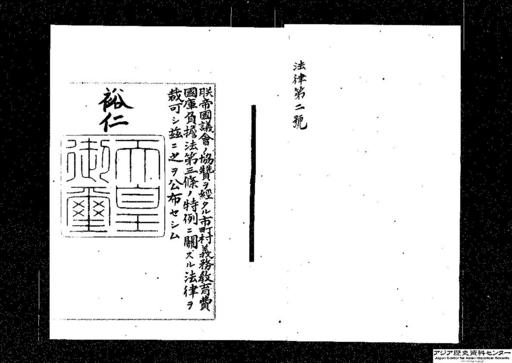 法律第二號
朕帝國議會ノ協贊ヲ經タル市町村義務敎育費
國庫負擔法第三條ノ特例ニ關スル法律ヲ
裁可シ茲ニ之ヲ公布セシム
裕仁
天皇
御璽
アジア歴史資料センター
Japan Center for Asian Historical Records